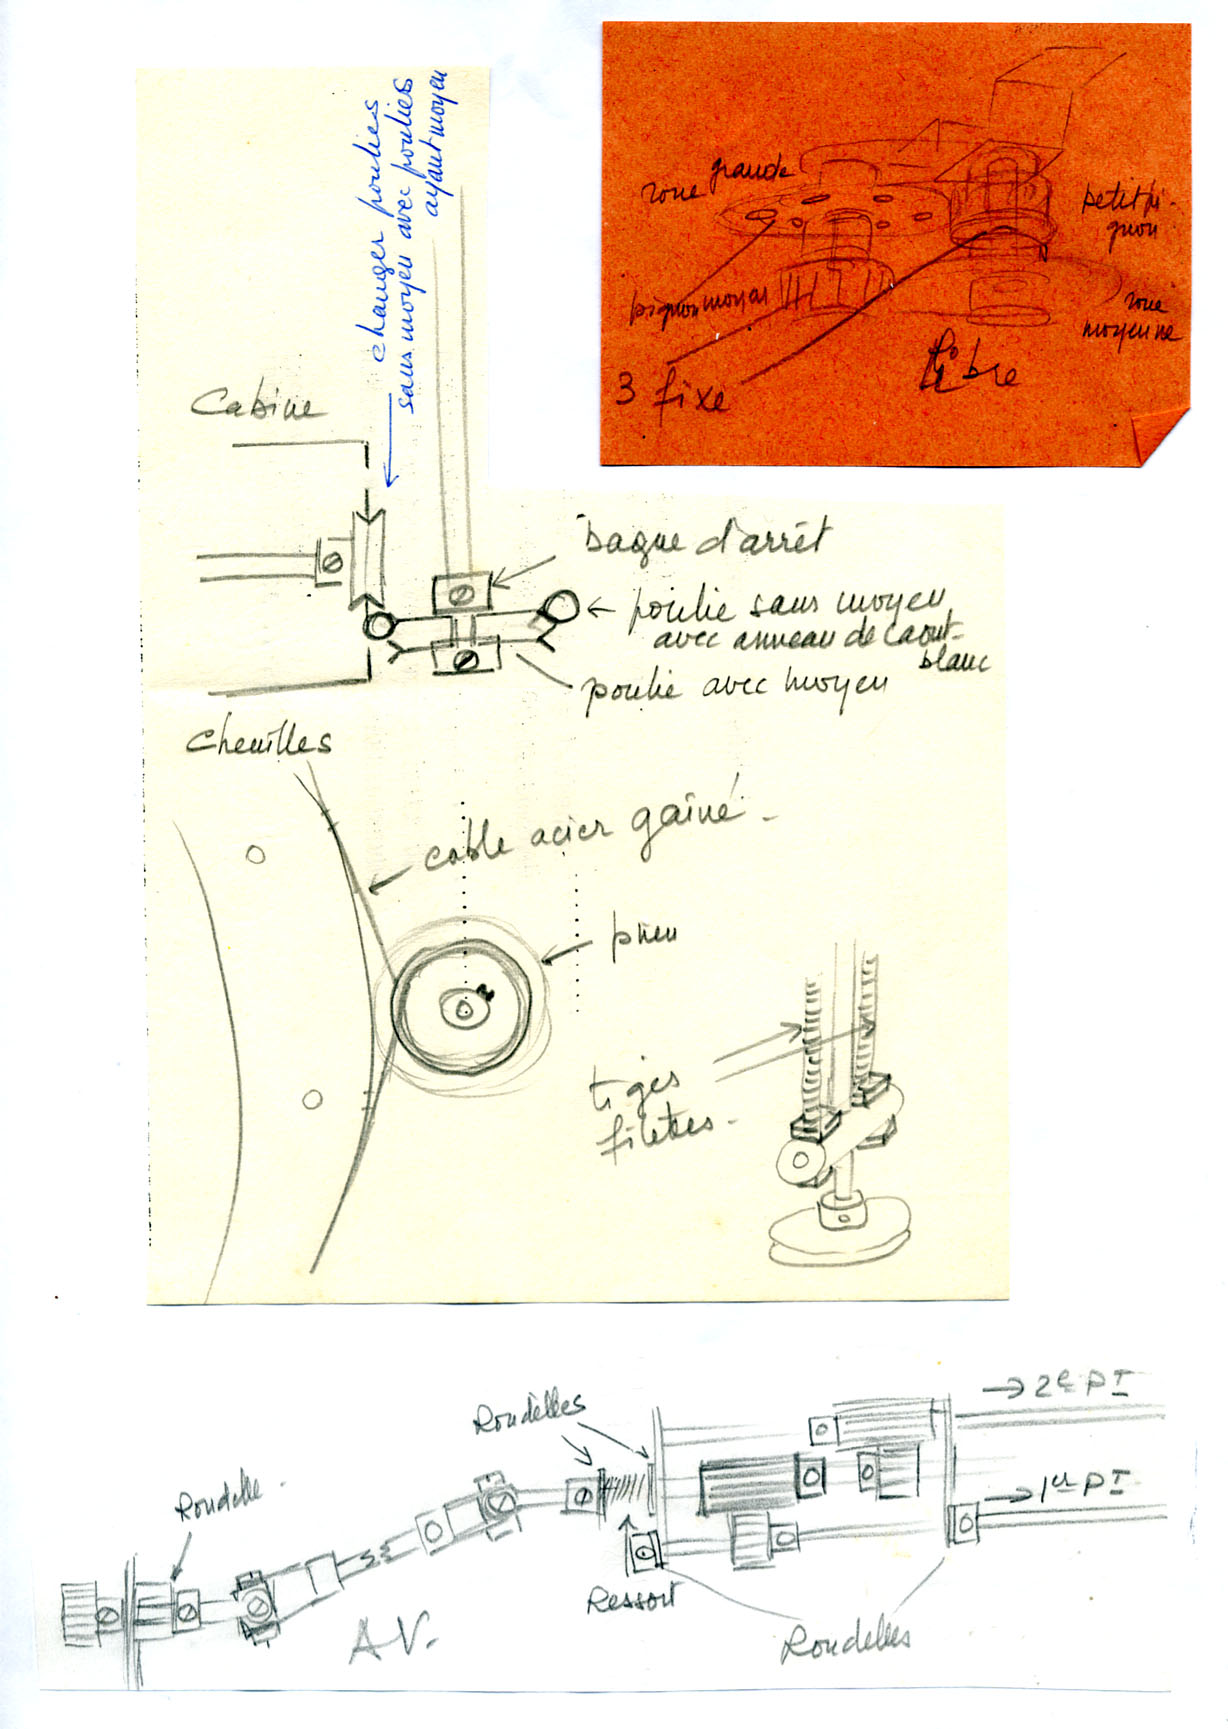 changer poulies
sans moyeu avec poulies
ayant moyeu
roue grande
petit pi-
gnon
pignon moyen
roue
moyenne
3 fixe
Libre
Cabine
bague d'arrêt
poulie sans moyeu
avec anneau de caout-
blanc
poulie avec moyeu
Chenilles
cable acier gaîné.
pneu
tiges
filetées.
→ 2e PT
Rondelles
Rondelle.
→ 1er PT
Ressort
AV.
Rondelles